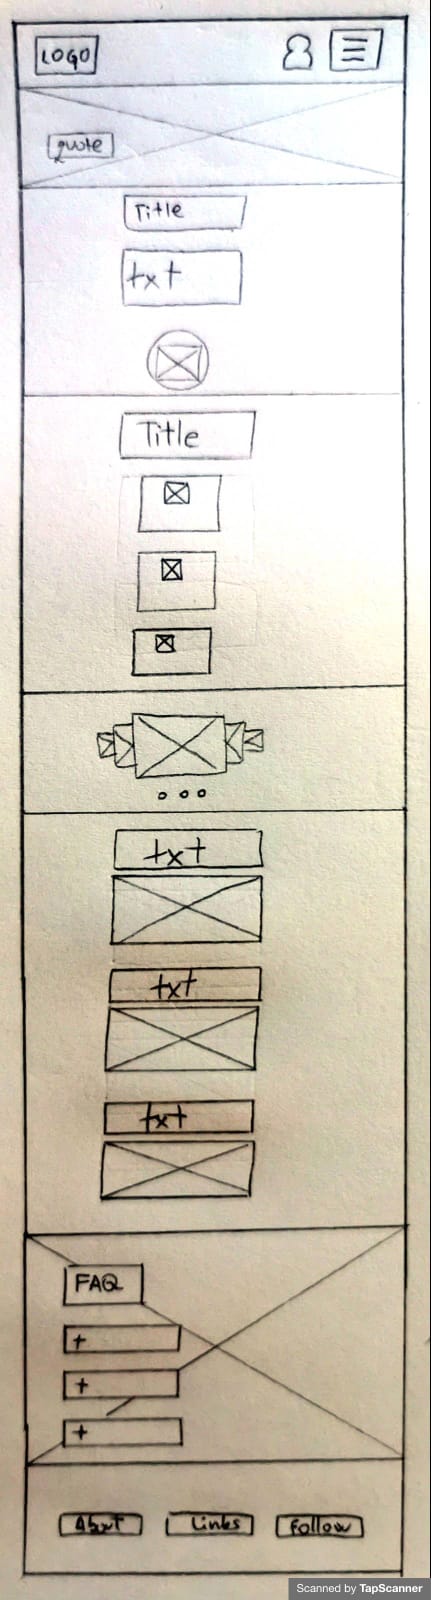 LOGO
quote
Title
txt
Title
txt
txt
txt
FAQ
+
+
+
About Links Follow
Scanned by TapScanner